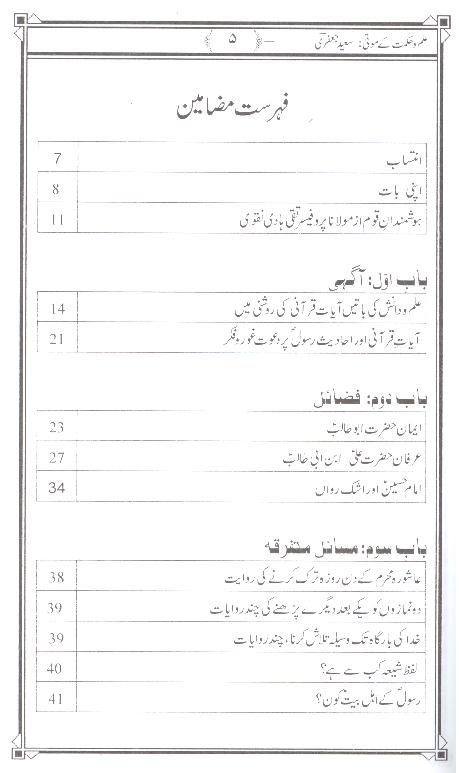 علم و حکمت کے موتی: سعید جعفری ۵
فہرست مضامین
انتساب 7
اپنی بات 8
ہوشمندانِ قوم از مولانا پروفیسر تقی ہادی نقوی 11
باب اوّل: آگہی
علم و دانش کی باتیں آیات قرآنی کی روشنی میں 14
آیات قرآنی اور احادیث رسولؐ پر دعوت غور و فکر 21
باب دوم: فضائل
ایمان حضرت ابوطالبؑ 23
عرفان حضرت علیؑ ابن ابی طالبؑ 27
امام حسینؑ اور اشک رواں 34
باب سوم: مسائل متفرقہ
عاشورہ محرم کے دن روزہ ترک کرنے کی روایت 38
دو نمازوں کو یکے بعد دیگرے پڑھنے کی چند روایات 39
خدا کی بارگاہ تک وسیلہ تلاش کرنا، چند روایات 39
لفظ شیعہ کب سے ہے؟ 40
رسولؐ کے اہل بیتؑ کون؟ 41